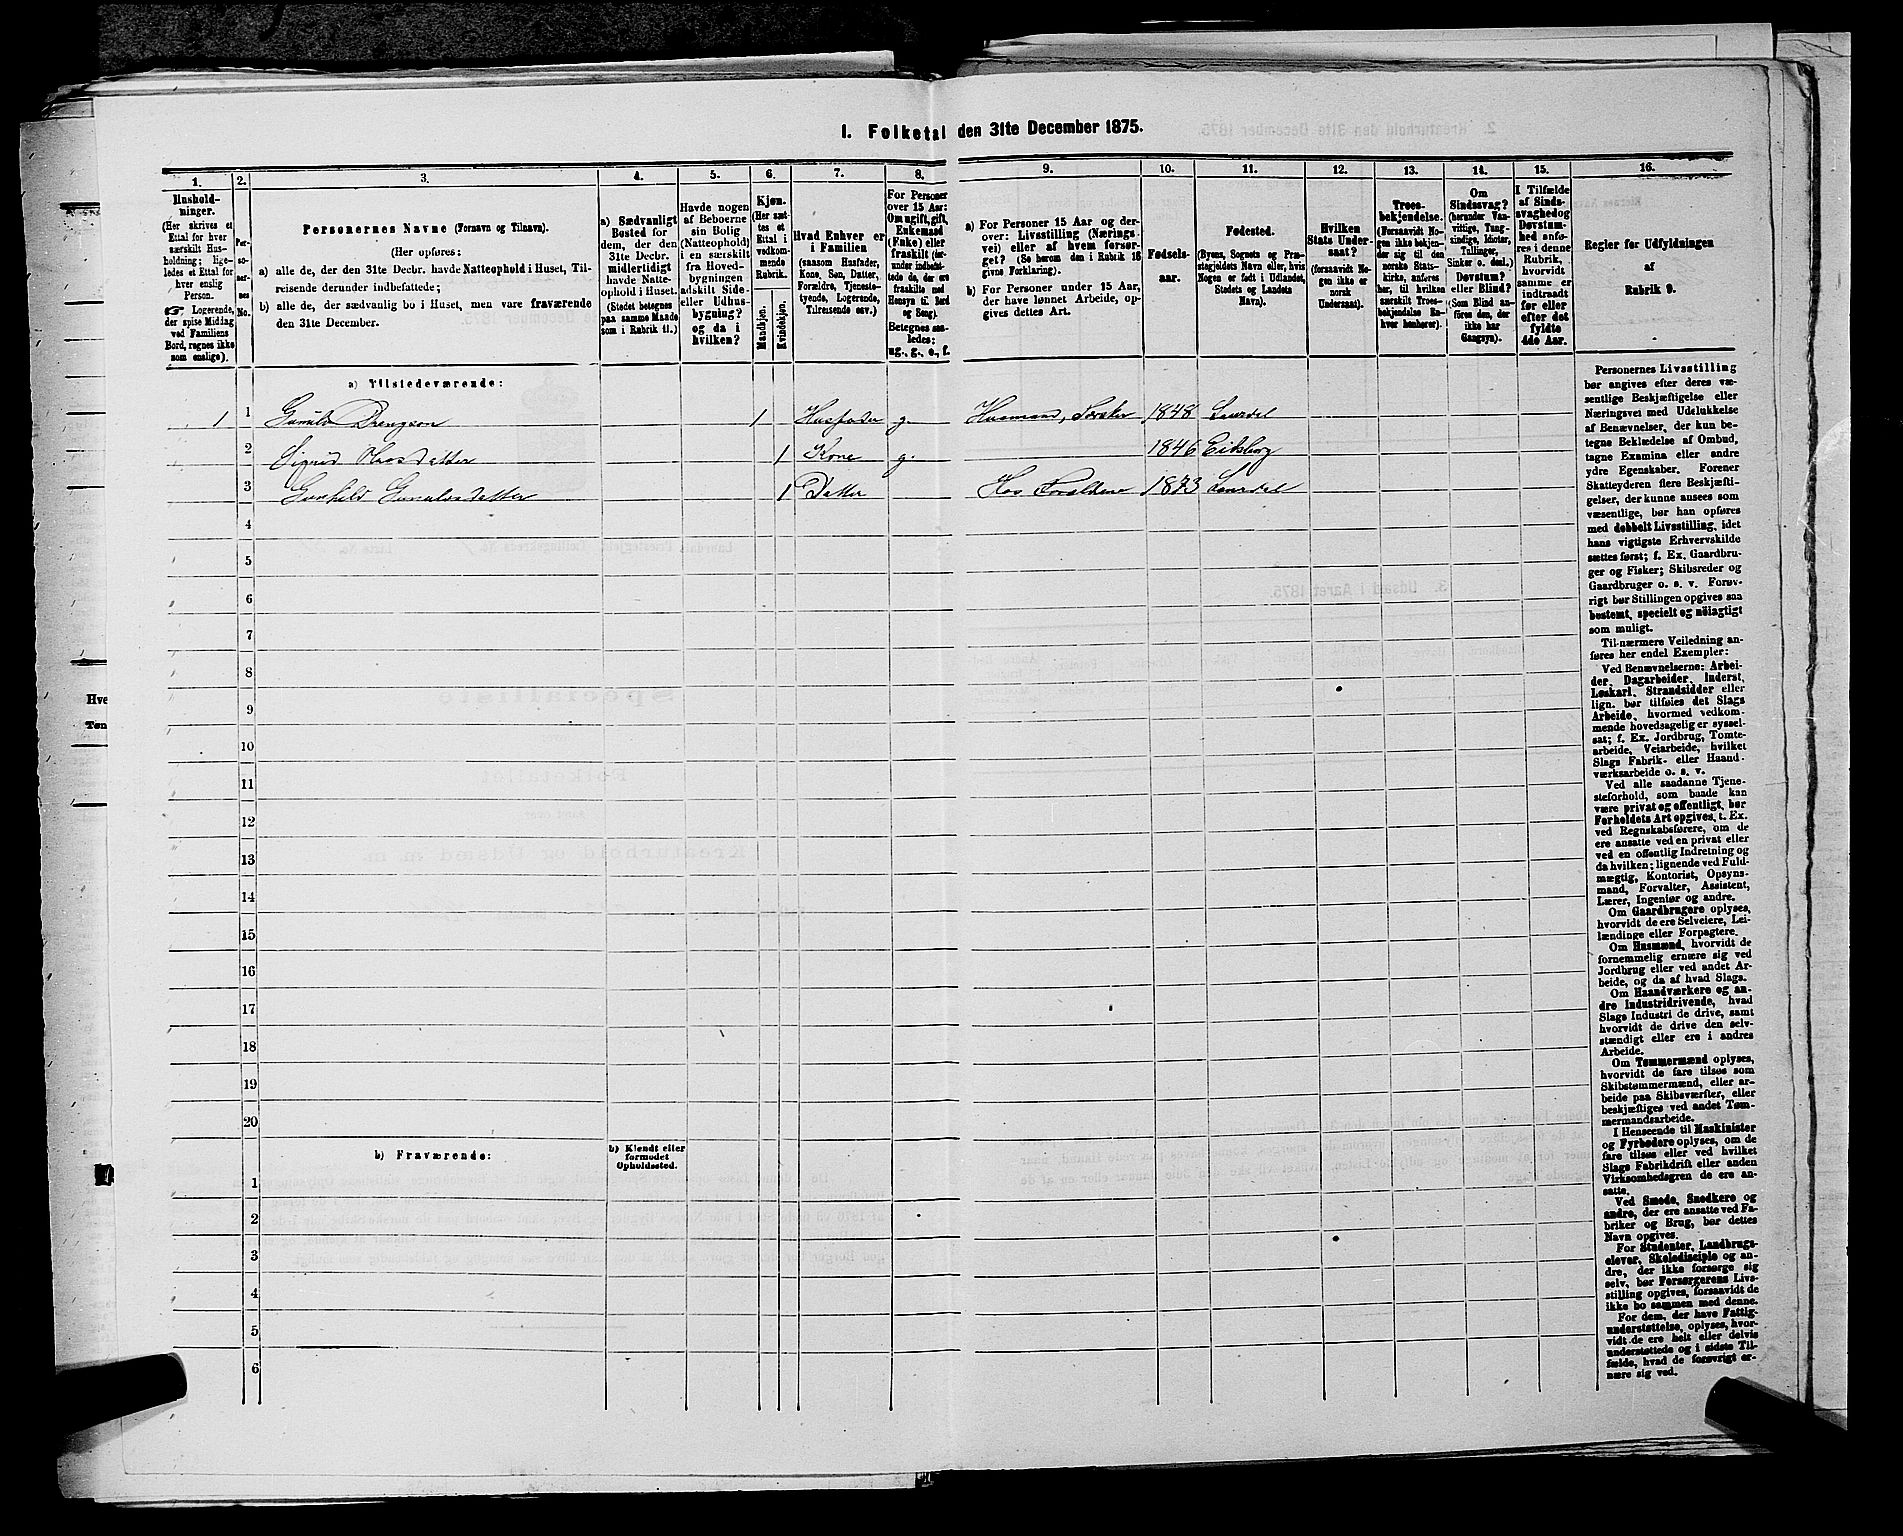 1. Folketal den 31te December 1875.
1.
Hushold-
ninger.
(Her skrives et
Ettal for hver
særskilt Hus-
holdning; lige-
ledes et Ettal for
hver enslig
Person.
Logerende,
der spise Middag
ved Familiens
Bord, regnes ikke
som enslige).
2.
Per-
so-
ner-
nes
No.
3.
Personernes Navne (Fornavn og Tilnavn).
(Her opføres:
a) alle de, der den 31te Decbr. havde Natteophold i Huset, Til-
reisende derunder indbefattede;
b) alle de, der sædvanlig bo i Huset, men vare fraværende
den 31te December.
4.
a) Sædvanligt
Bosted for
dem, der den
31te Decbr.
midlertidigt
havde Natte-
ophold i Huset.
(Stedet betegnes
paa samme Maade
som i Rubrik 11.)
5.
Havde nogen
af Beboerne
sin Bolig
(Natteophold)
i en særskilt
fra Hoved-
bygningen
adskilt Side-
eller Udhus-
bygning?
og da i
hvilken?
6.
Kjøn.
(Her sæt-
tes et
Ettal i
vedkom-
mende
Rubrik.
Mandkjøn.
Kvindekjøn.
7.
Hvad Enhver er
i Familien
(saasom Husfader,
Kone, Søn, Datter,
Forældre, Tjeneste-
tyende, Logerende,
Tilreisende osv.)
8.
For Personer
over 15 Aar:
Om ugift, gift,
Enkemand
(Enke) eller
fraskilt (der-
under indbefat-
tede de, der ere
fraskilte med
Hensyn til Bord
og Seng).
Betegnes saa-
ledes:
ug., g., e., f.
9.
a) For Personer 15 Aar og der-
over: Livsstilling (Nærings-
vei) eller af hvem forsør-
get? (Se herom den i Rubrik 16
givne Forklaring).
b) For Personer under 15 Aar,
der have lønnet Arbeide, op-
gives dettes Art.
10.
Fødsels-
aar.
11.
Fødested.
(Byens, Sognets og Præ-
stegjeldets Navn eller, hvis
Nogen er født i Udlandet,
Stedets og Landets
Navn).
12.
Hvilken
Stats Under-
saat?
(forsaavidt No-
gen ikke er
norsk
Undersaat).
13.
Troes-
bekjendelse.
(Forsaavidt No-
gen ikke bekjen-
der sig til den
norske Stats-
kirke, anføres
her, til hvilken
særskilt Troes-
bekjendelse En-
hver henhører).
14.
Om
Sindssvag?
(herunder Van-
vittige, Tung-
sindige, Idioter,
Tullinger,
Sinker o. desl.)
Døvstum?
eller Blind?
(Som Blind an-
føres den, der
ikke har
Gangsyn).
15.
I Tilfælde
af Sinds-
svaghed og
Døvstum-
hed anfø-
res i denne
Rubrik,
hvorvidt
samme er
indtraadt
før eller
efter det
fyldte
4de Aar.
16.
Regler for Udfyldningen
af
Rubrik 9.
a) Tilstedeværende:
1 1 Gunuld Drengson 1 Husfader g. Husmand, 1848 Laurdal
2 Sigrid Haosdatter 1 Kone g. 1846 Eidsborg
3 Gunhild Gunulsdatter 1 Datter Hos Forældrene 1873 Laurdal
4
5
6
7
8
9
10
11
12
13
14
15
16
17
18
19
20
b) Fraværende:
b) Kjendt eller
formodet
Opholdssted.
1
2
3
4
5
6
Personernes Livsstilling
bør angives efter deres væ-
sentlige Beskjæftigelse eller
Næringsvei med Udelukkelse
af Benævnelser, der kun be-
tegne Beklædelse af Ombud,
tagne Examina eller andre
ydre Egenskaber. Forener
Skatteyderen flere Beskjæfti-
gelser, der kunne ansees som
væsentlige, bør han opføres
med dobbelt Livsstilling, idet
hans vigtigste Erhvervskilde
sættes først; f. Ex. Gaardbru-
ger og Fisker; Skibsreder og
Gaardbruger o. s. v. Forøv-
rigt bør Stillingen opgives saa
bestemt, specielt og nøiagtigt
som muligt.
Til nærmere Veiledning an-
føres her endel Exempler:
Ved Benævnelserne: Arbei-
der, Dagarbeider, Inderst,
Løskarl, Strandsidder eller
lign. bør tilføies det Slags
Arbeide, hvormed vedkom-
mende hovedsagelig er syssel-
sat; f. Ex. Jordbrug, Tomte-
arbeide, Veiarbeide, hvilket
Slags Fabrik- eller Haand-
værksarbeide o. s. v.
Ved alle saadanne Tjene-
steforhold, som baade kan
være privat og offentligt, bør
Forholdets Art opgives, t. Ex.
ved Regnskabsførere, om de
ere ansatte ved en privat eller
ved en offentlig Indretning og
da hvilken; lignende ved Fuld-
mægtig, Kontorist, Opsyns-
mand, Forvalter, Assistent,
Lærer, Ingeniør og andre.
Om Gaardbrugere oplyses,
hvorvidt de ere Selveiere, Lei-
lændinge eller Forpagtere.
Om Husmænd, hvorvidt de
fornemmelig ernære sig ved
Jordbrug eller ved andet Ar-
beide, og da af hvad Slags.
Om Haandværkere og an-
dre Industridrivende, hvad
Slags Industri de drive, samt
hvorvidt de drive den selv-
stændigt eller ere i andres
Arbeide.
Om Tømmermænd oplyses,
hvorvidt de fare tilsøs som
Skibstømmermænd, eller ar-
beide paa Skibsværfter, eller
beskjæftiges ved andet Tøm-
mermandsarbeide.
I Henseende til Maskinister
og Fyrbødere oplyses, om de
fare tilsøs eller ved hvilket
Slags Fabrikdrift eller anden
Virksomhedsgren de ere an-
satte.
Ved Smede, Snedkere og
andre, der ere ansatte ved Fa-
briker og Brug, bør dettes
Navn opgives.
For Studenter, Landbrugs-
elever, Skoledisciple og an-
dre, der ikke forsørge sig
selv, bør Forsørgerens Livs-
stilling opgives, forsaavidt de
ikke bo sammen med denne.
For dem, der have Fattig-
understøttelse, oplyses, hvor-
vidt de ere helt eller delvis
understøttede og i sidste Til-
fælde, hvad de forøvrigt er-
nære sig ved.